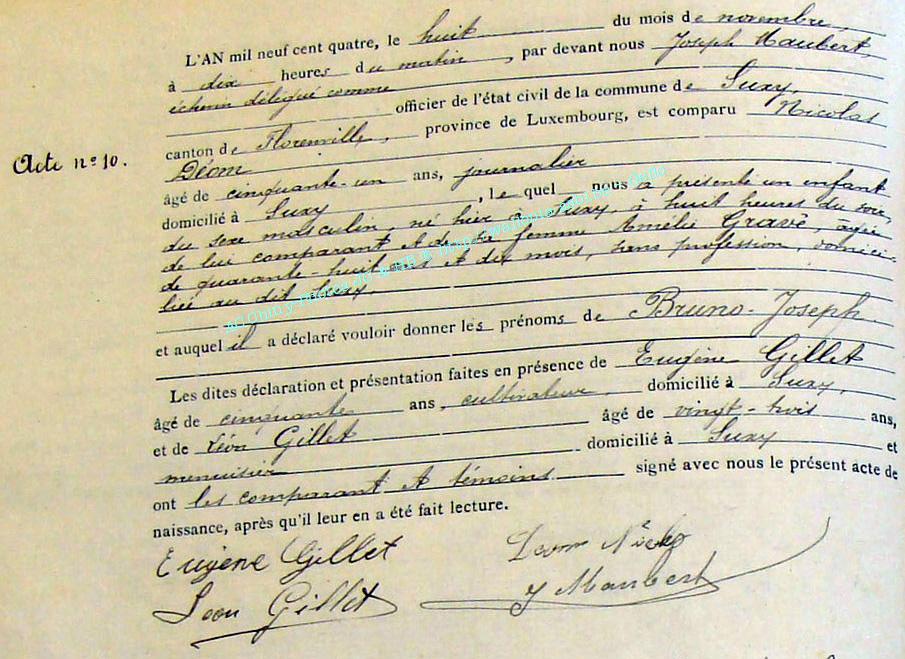 L'AN mil neuf cent quatre, le huit du mois de novembre
à dix heures du matin, par devant nous Joseph Maubert,
échevin délégué comme officier de l'état civil de la commune de Suxy,
canton de Florenville, province de Luxembourg, est comparu Nicolas
Déom
Acte n° 10.
âgé de cinquante-un ans, journalier
domicilié à Suxy, lequel nous a présenté un enfant
du sexe masculin, né hier à Suxy, à huit heures du soir,
de lui comparant et de sa femme Amélie Gravé, âgée
de quarante-huit ans et dix mois, sans profession, domici-
liée au dit Suxy.
et auquel il a déclaré vouloir donner les prénoms de Bruno-Joseph.
Les dites déclaration et présentation faites en présence de Eugène Gillet
âgé de cinquante ans, cultivateur, domicilié à Suxy,
et de Léon Gillet âgé de vingt-trois ans,
menuisier domicilié à Suxy et
ont les comparant et témoins signé avec nous le présent acte de
naissance, après qu'il leur en a été fait lecture.
Eugène Gillet Deom
Léon Gillet J Maubert